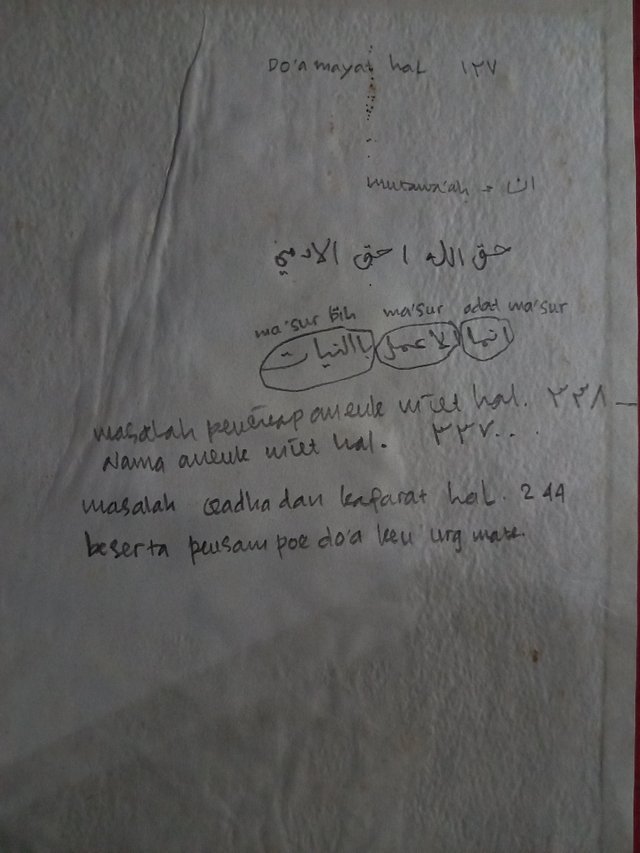 Do'a mayat hal ١٣٧
mutawa'ah → ان
حق الله / حق الادمي
ma'sur bih ma'sur adad ma'sur
انما الاعمل باالنيات
masalah peutirap aneuk miet hal. ٢٣٨ —
Nama aneuk miet hal. ٢٣٧...
masalah Qadha dan kafarat hal. 244
beserta peusampoe do'a keu urg mate.